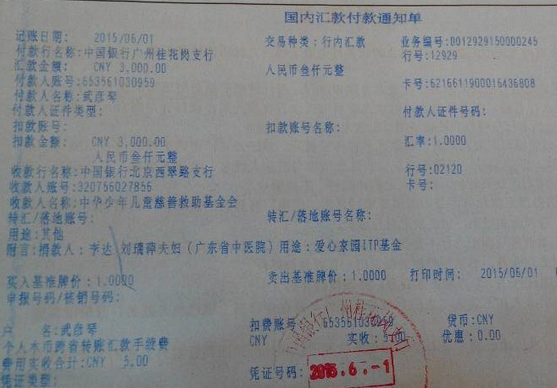 国内汇款付款通知单
记账日期: 2015/06/01 交易种类: 行内汇款 业务编号: 0012929150000245
付款行名称: 中国银行广州桂花岗支行 行号: 12929
汇款金额: CNY 3,000.00 人民币叁仟元整
付款人账号: 653561030959 卡号: 6216611900016436808
付款人名称: 武彦琴
付款人证件类型: 付款人证件号码:
扣款账号: 扣款账号名称:
扣款金额: CNY 3,000.00 汇率: 1.0000
人民币叁仟元整
收款行名称: 中国银行北京西翠路支行 行号: 02120
收款人账号: 320756027856 卡号:
收款人名称: 中华少年儿童慈善救助基金会
转汇/落地账号: 转汇/落地账号名称:
用途: 其他
附言: 捐款人: 李达、刘瑞萍夫妇(广东省中医院)用途: 爱心家园ITP基金
买入基准牌价: 1.0000 卖出基准牌价: 1.0000 打印时间: 2015/06/01
申报号码/核销号码:
户 名: 武彦琴 扣费账号 653561030959 货币: CNY
个人本币跨省转账汇款手续费 CNY 实收: 5.00 优惠: 0.00
费用实收合计: CNY 5.00
凭证类型: 凭证号码:
2015.6.-1